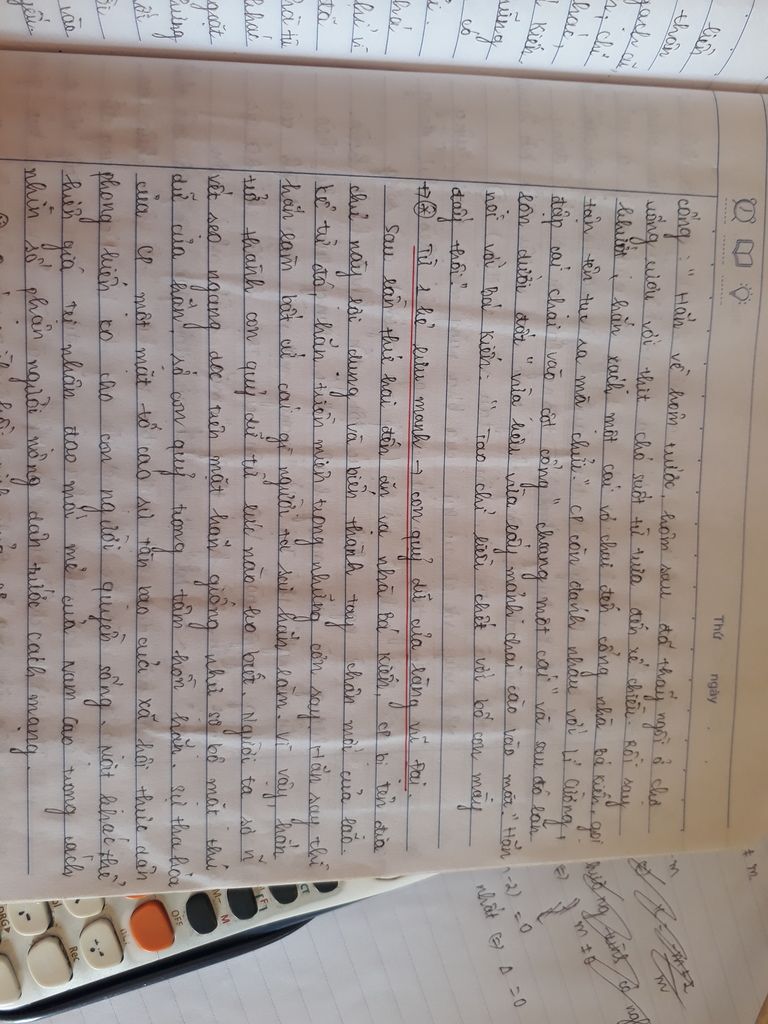 Thứ
ngày
cổng: " Hắn về hôm trước, hôm sau đã thấy ngồi ở chợ
uống rượu với thịt chó suốt từ trưa đến xế chiều. Rồi say
khướt, hắn xách một cái vỏ chai đến cổng nhà bá kiến, gọi
tận tên tục ra mà chửi." CP còn đánh nhau với Lí Cường,
đập cái chai vào cột cổng " choang một cái" và sau đó lăn
lộn dưới đất " vừa kêu vừa lấy mảnh chai cào vào mặt." Hắn
nói với Bá Kiến: " Tao chỉ liều chết với bố con mày
đấy thôi"
Từ 1 kẻ lưu manh → con quỷ dữ của làng Vũ Đại.
Sau lần thứ hai đến ăn vạ nhà Bá Kiến, CP bị tên địa
chủ này lợi dụng và biến thành tay chân mới của lão.
Kể từ đó, hắn triền miên trong những cơn say. Hắn say thì
hắn làm bất cứ cái gì người ta sai hắn làm. Vì vậy, hắn
trở thành con quỷ dữ từ lúc nào ko biết. Người ta sợ n
vết sẹo ngang dọc trên mặt hắn giống như sợ bộ mặt thú
dữ của hắn, sợ con quỷ trong tâm hồn hắn. Sự tha hóa
của CP một mặt tố cáo sự tàn bạo của xã hội thực dân
phong kiến ko cho con người quyền sống. Mặt khác thể
hiện giá trị nhân đạo mới mẻ của Nam Cao trong cách
nhìn số phận người nông dân trước cách mạng.
± m
= 0
m ± 0
nhất ⇔ Δ = 0
OFF
M-
M
CT
Rec
DRG▸